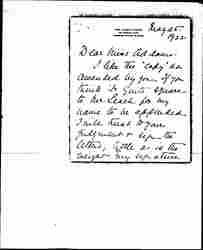 May 25
1922
Dear Miss Addams
I like the "copy" as
amended by you. If you
think it quite square
to Mr. Leach for my
name to be appended
I will trust to your
judgment & sign the
letter, little as is the
weight my signature